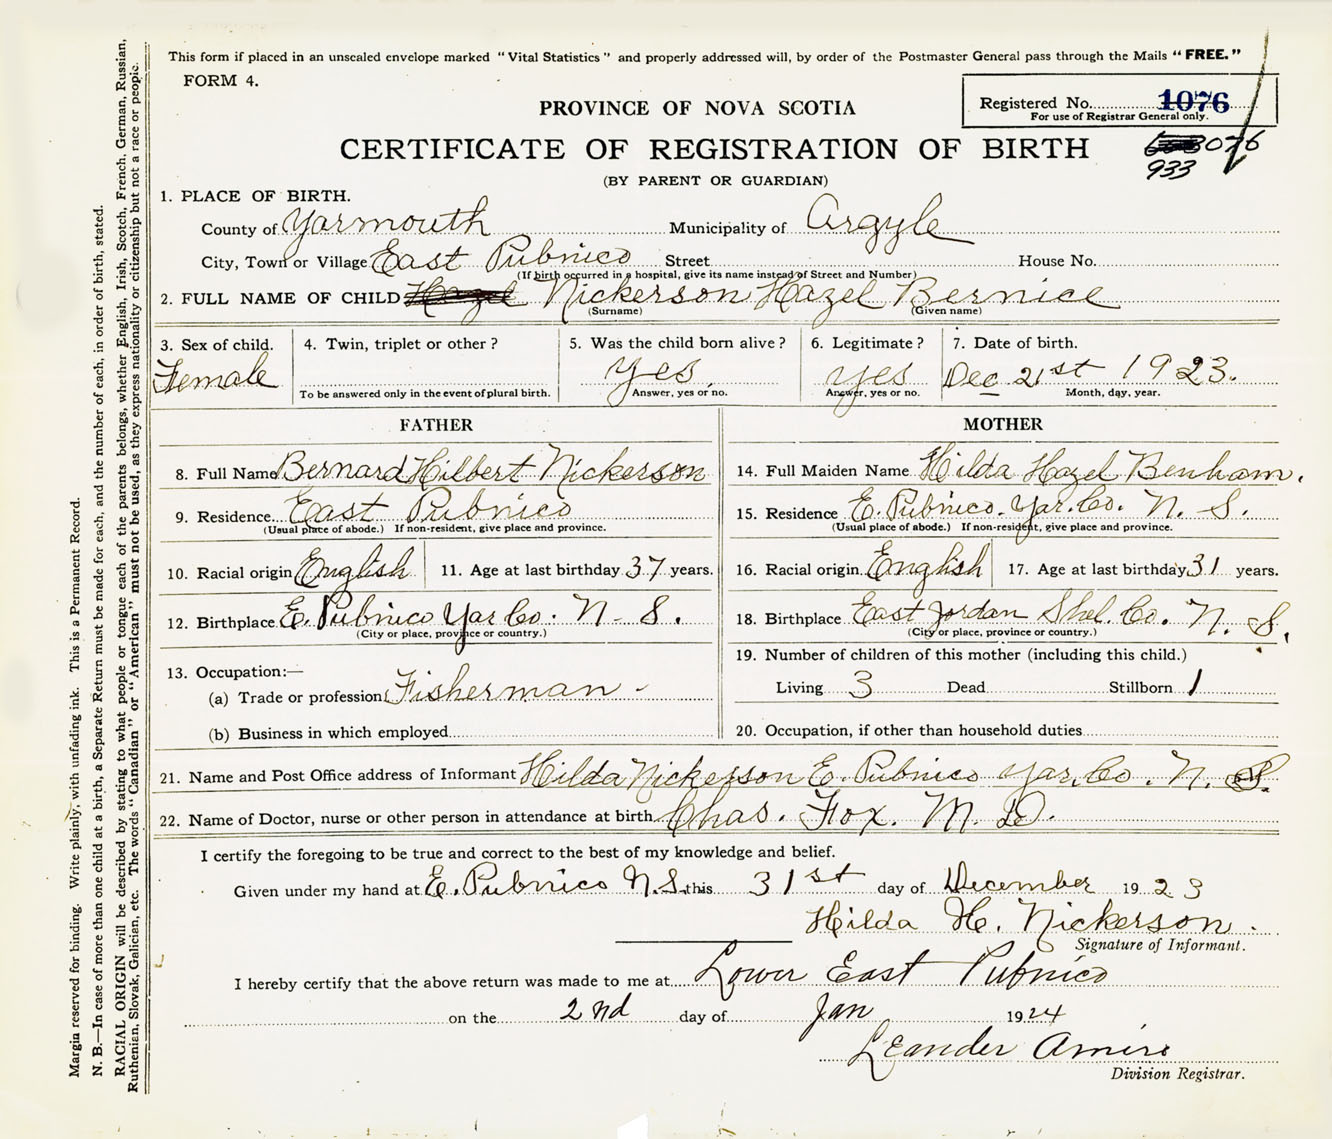 This form if placed in an unsealed envelope marked "Vital Statistics" and properly addressed will, by order of the Postmaster General pass through the Mails "FREE."
FORM 4.
Registered No. 1076
For use of Registrar General only.
PROVINCE OF NOVA SCOTIA
CERTIFICATE OF REGISTRATION OF BIRTH
076
933
(BY PARENT OR GUARDIAN)
1. PLACE OF BIRTH.
County of Yarmouth Municipality of Argyle
City, Town or Village East Pubnico Street House No.
(If birth occurred in a hospital, give its name instead of Street and Number)
2. FULL NAME OF CHILD Hazel Nickerson Hazel Bernice
(Surname) (Given name)
3. Sex of child. 4. Twin, triplet or other? 5. Was the child born alive? 6. Legitimate? 7. Date of birth.
Female Yes. Yes Dec 21st 1923.
To be answered only in the event of plural birth. Answer, yes or no. Answer, yes or no. Month, day, year.
FATHER
8. Full Name Bernard Hilbert Nickerson
9. Residence East Pubnico
(Usual place of abode.) If non-resident, give place and province.
10. Racial origin English 11. Age at last birthday 37 years.
12. Birthplace E. Pubnico Yar Co. N. S.
(City or place, province or country.)
13. Occupation:—
(a) Trade or profession Fisherman -
(b) Business in which employed
MOTHER
14. Full Maiden Name Hilda Hazel Benham.
15. Residence E. Pubnico. Yar. Co. N. S.
(Usual place of abode.) If non-resident, give place and province.
16. Racial origin English 17. Age at last birthday 31 years.
18. Birthplace East Jordan Shel. Co. N. S.
(City or place, province or country.)
19. Number of children of this mother (including this child.)
Living 3 Dead Stillborn 1
20. Occupation, if other than household duties
21. Name and Post Office address of Informant Hilda Nickerson E. Pubnico Yar. Co. N. S.
22. Name of Doctor, nurse or other person in attendance at birth Chas. Fox. M. D.
I certify the foregoing to be true and correct to the best of my knowledge and belief.
Given under my hand at E. Pubnico N.S. this 31st day of December 1923
Hilda H. Nickerson.
Signature of Informant.
I hereby certify that the above return was made to me at Lower East Pubnico
on the 2nd day of Jan 1924
Leander Amiro
Division Registrar.
Margin reserved for binding. Write plainly, with unfading ink. This is a Permanent Record.
N. B.—In case of more than one child at a birth, a Separate Return must be made for each, and the number of each, in order of birth, stated.
RACIAL ORIGIN will be described by stating to what people or tongue each of the parents belongs, whether English, Irish, Scotch, French, German, Russian,
Ruthenian, Slovak, Galician, etc. The words "Canadian" or "American" must not be used, as they express nationality or citizenship but not a race or people.